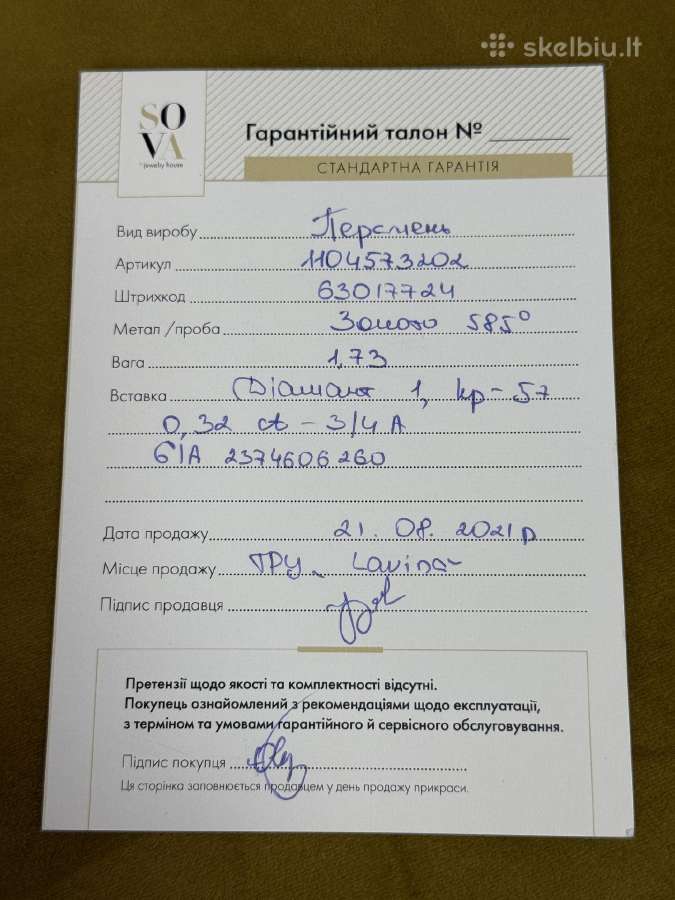 skelbiu.lt
SO
VA
jewelry house
Гарантійний талон № ________
СТАНДАРТНА ГАРАНТІЯ
Вид виробу Перстень
Артикул 1104573202
Штрихкод 63017724
Метал /проба Золото 585°
Вага 1,73
Вставка Діамант 1, кр-57
0,32 ct - 3/4 A
GIA 2374606260
Дата продажу 21. 08. 2021р
Місце продажу ТРЦ Lavina
Підпис продавця
Претензії щодо якості та комплектності відсутні.
Покупець ознайомлений з рекомендаціями щодо експлуатації,
з терміном та умовами гарантійного й сервісного обслуговування.
Підпис покупця
Ця сторінка заповнюється продавцем у день продажу прикраси.